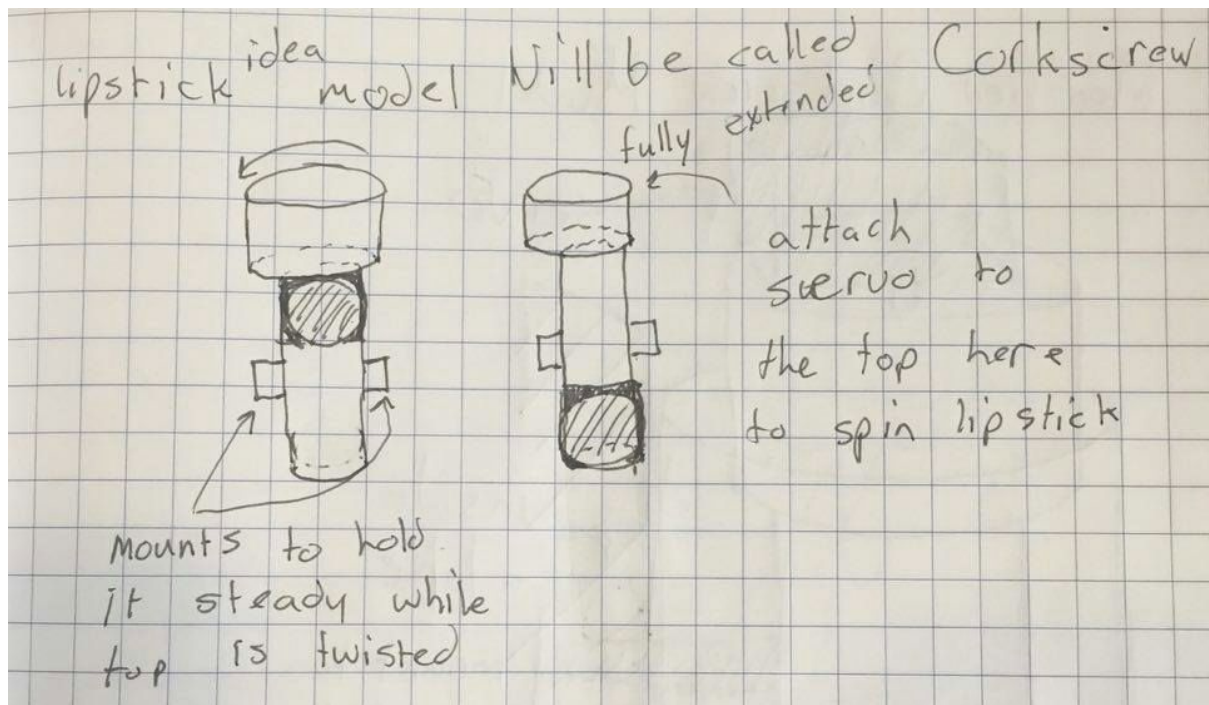 lipstick idea model Will be called Corkscrew
fully extended
attach
servo to
the top here
to spin lipstick
mounts to hold
it steady while
top is twisted